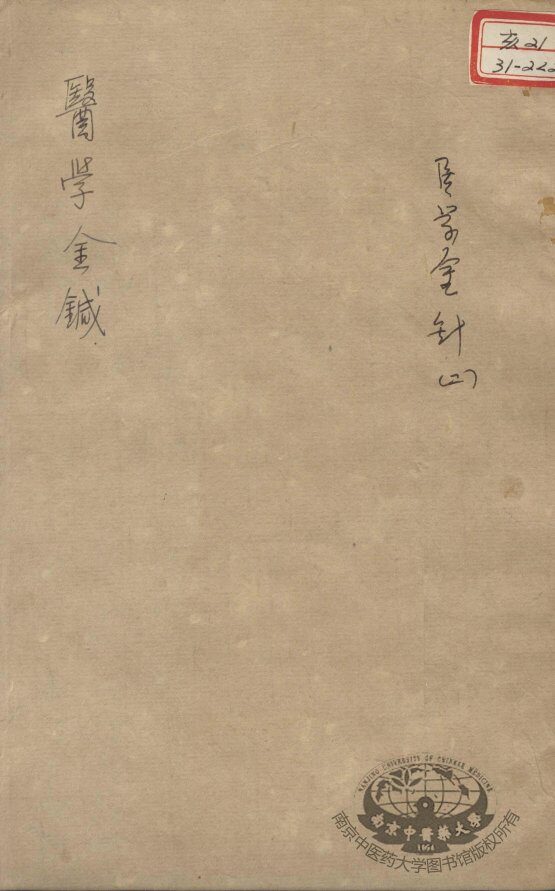 亥21
31-222
医学金针(二)
醫學金鍼
NANJING UNIVERSITY OF CHINESE MEDICINE
南京中醫藥大學
1954
南京中医药大学图书馆版权所有